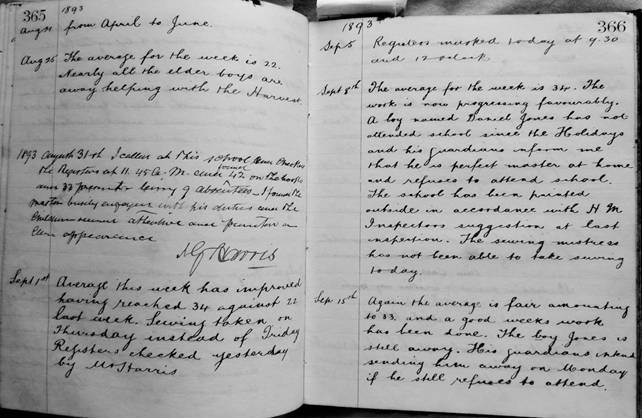 365
1893
Aug 21 from April to June.
Aug 25 The average for the week is 22.
Nearly all the elder boys are
away helping with the Harvest.
1893 August 31st I called at this school and checked
the Registers at 11.45 A.M. and found 42 on the books
and 33 present being 9 absentees - I found the
master busily engaged with his duties and the
children seemed attentive and punctual and
clean appearance
Sept 1st Average this week has improved
having reached 34 against 22
last week. Sewing taken on
Thursday instead of Friday
Registers checked yesterday
by Mr Harris
1893
366
Sep. 5 Registers marked today at 9.30
and 12 o'clock.
Sept 8th The average for the week is 34. The
work is now progressing favourably.
A boy named Daniel Jones has not
attended school since the Holidays
and his guardians inform me
that he is perfect master at home
and refuses to attend school.
The school has been painted
outside in accordance with H M
Inspectors suggestion at last
inspection. The sewing mistress
has not been able to take sewing
today.
Sep 15th Again the average is fair amounting
to 33 and a good weeks work
has been done. The boy Jones is
still away. His guardians intend
sending him away on Monday
if he still refuses to attend.